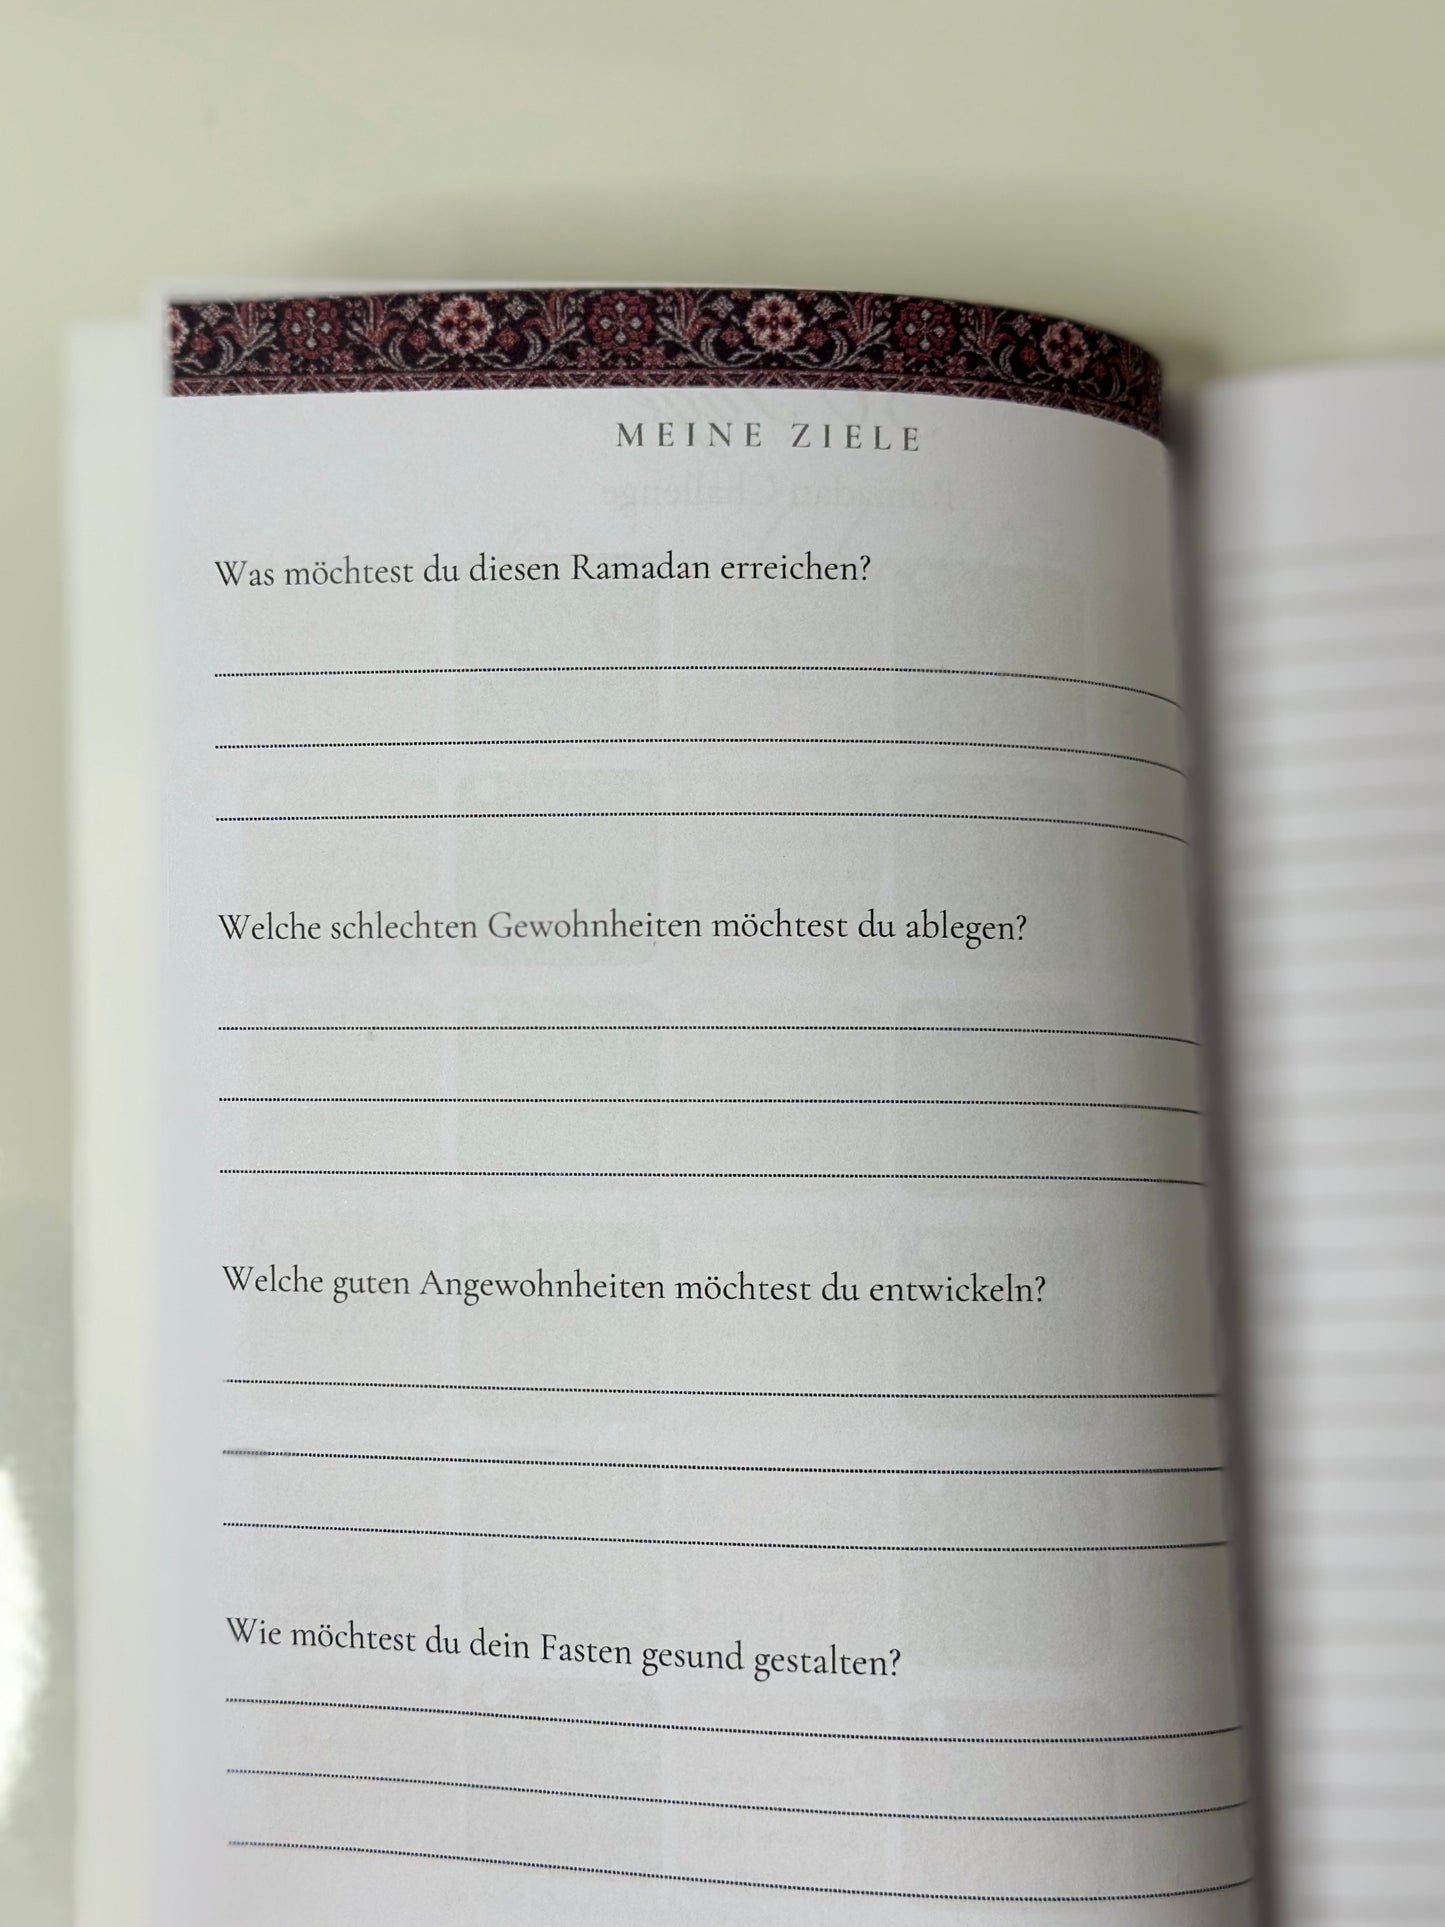 MEINE ZIELE
Was möchtest du diesen Ramadan erreichen?
Welche schlechten Gewohnheiten möchtest du ablegen?
Welche guten Angewohnheiten möchtest du entwickeln?
Wie möchtest du dein Fasten gesund gestalten?